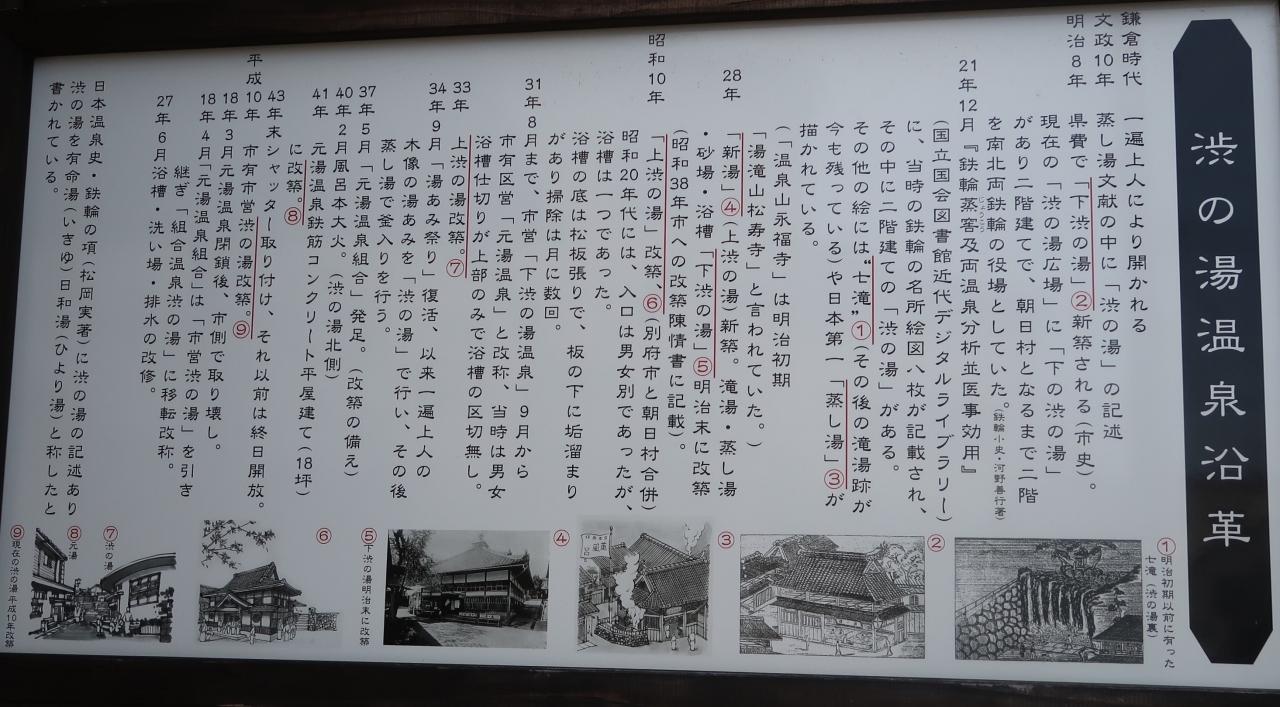 渋の湯温泉沿革
鎌倉時代　一遍上人により開かれる
文政10年　蒸し湯文献の中に「渋の湯」の記述
明治8年　県費で「下渋の湯」②新築される(市史)。
現在の「渋の湯広場」に「下の渋の湯」
があり二階建てで、朝日村となるまで二階
を南北両鉄輪の役場としていた。(鉄輪小史・河野善行著)
21年12月『鉄輪蒸窖及両温泉分析並医事効用』
(国立国会図書館近代デジタルライブラリー)
に、当時の鉄輪の名所絵図八枚が記載され、
その中に二階建ての「渋の湯」がある。
その他の絵には“七滝”①(その後の滝湯跡が
今も残っている)や日本第一「蒸し湯」③が
描かれている。
(「温泉山永福寺」は明治初期
「湯滝山松寿寺」と言われていた。)
28年　「新湯」④(上渋の湯)新築。滝湯・蒸し湯
・砂場・浴槽「下渋の湯」⑤明治末に改築
(昭和38年市への改築陳情書に記載)。
昭和10年　「上渋の湯」改築、⑥(別府市と朝日村合併)
昭和20年代には、入口は男女別であったが、
浴槽は一つであった。
浴槽の底は松板張りで、板の下に垢溜まり
があり掃除は月に数回。
31年8月まで、市営「下渋の湯温泉」9月から
市有区営「元湯温泉」と改称、当時は男女
浴槽仕切りが上部のみで浴槽の区切無し。
33年　上渋の湯改築。⑦
34年9月「湯あみ祭り」復活、以来一遍上人の
木像の湯あみを「渋の湯」で行い、その後
蒸し湯で釜入りを行う。
37年5月「元湯温泉組合」発足。(改築の備え)
40年2月風呂本大火。(渋の湯北側)
41年　元湯温泉鉄筋コンクリート平屋建て(18坪)
に改築。⑧
43年末シャッター取り付け、それ以前は終日開放。
平成10年　市有市営渋の湯改築。⑨
18年3月元湯温泉閉鎖後、市側で取り壊し。
18年4月「元湯温泉組合」は「市営渋の湯」を引き
継ぎ「組合温泉渋の湯」に移転改称。
27年6月浴槽・洗い場・排水の改修。
日本温泉史・鉄輪の項(松岡実著)に渋の湯の記述あり
渋の湯を有命湯(いきゆ)日和湯(ひより湯)と称したと
書かれている。
①明治初期以前に有った
七滝(渋の湯裏)
②
③
④
⑤下渋の湯明治末に改築
⑥
⑦渋の湯
⑧元湯
⑨現在の渋の湯平成10年改築